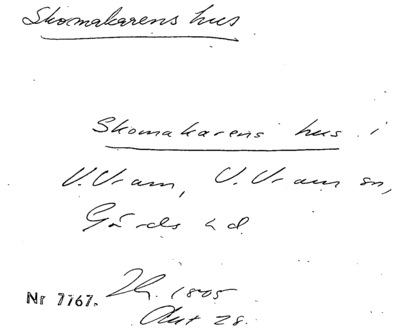 Skomakarens hus.
Skomakarens hus i
V. Vram, V. Vram sn,
Gärds hd
Nr 7767. 1805
Akt 28.